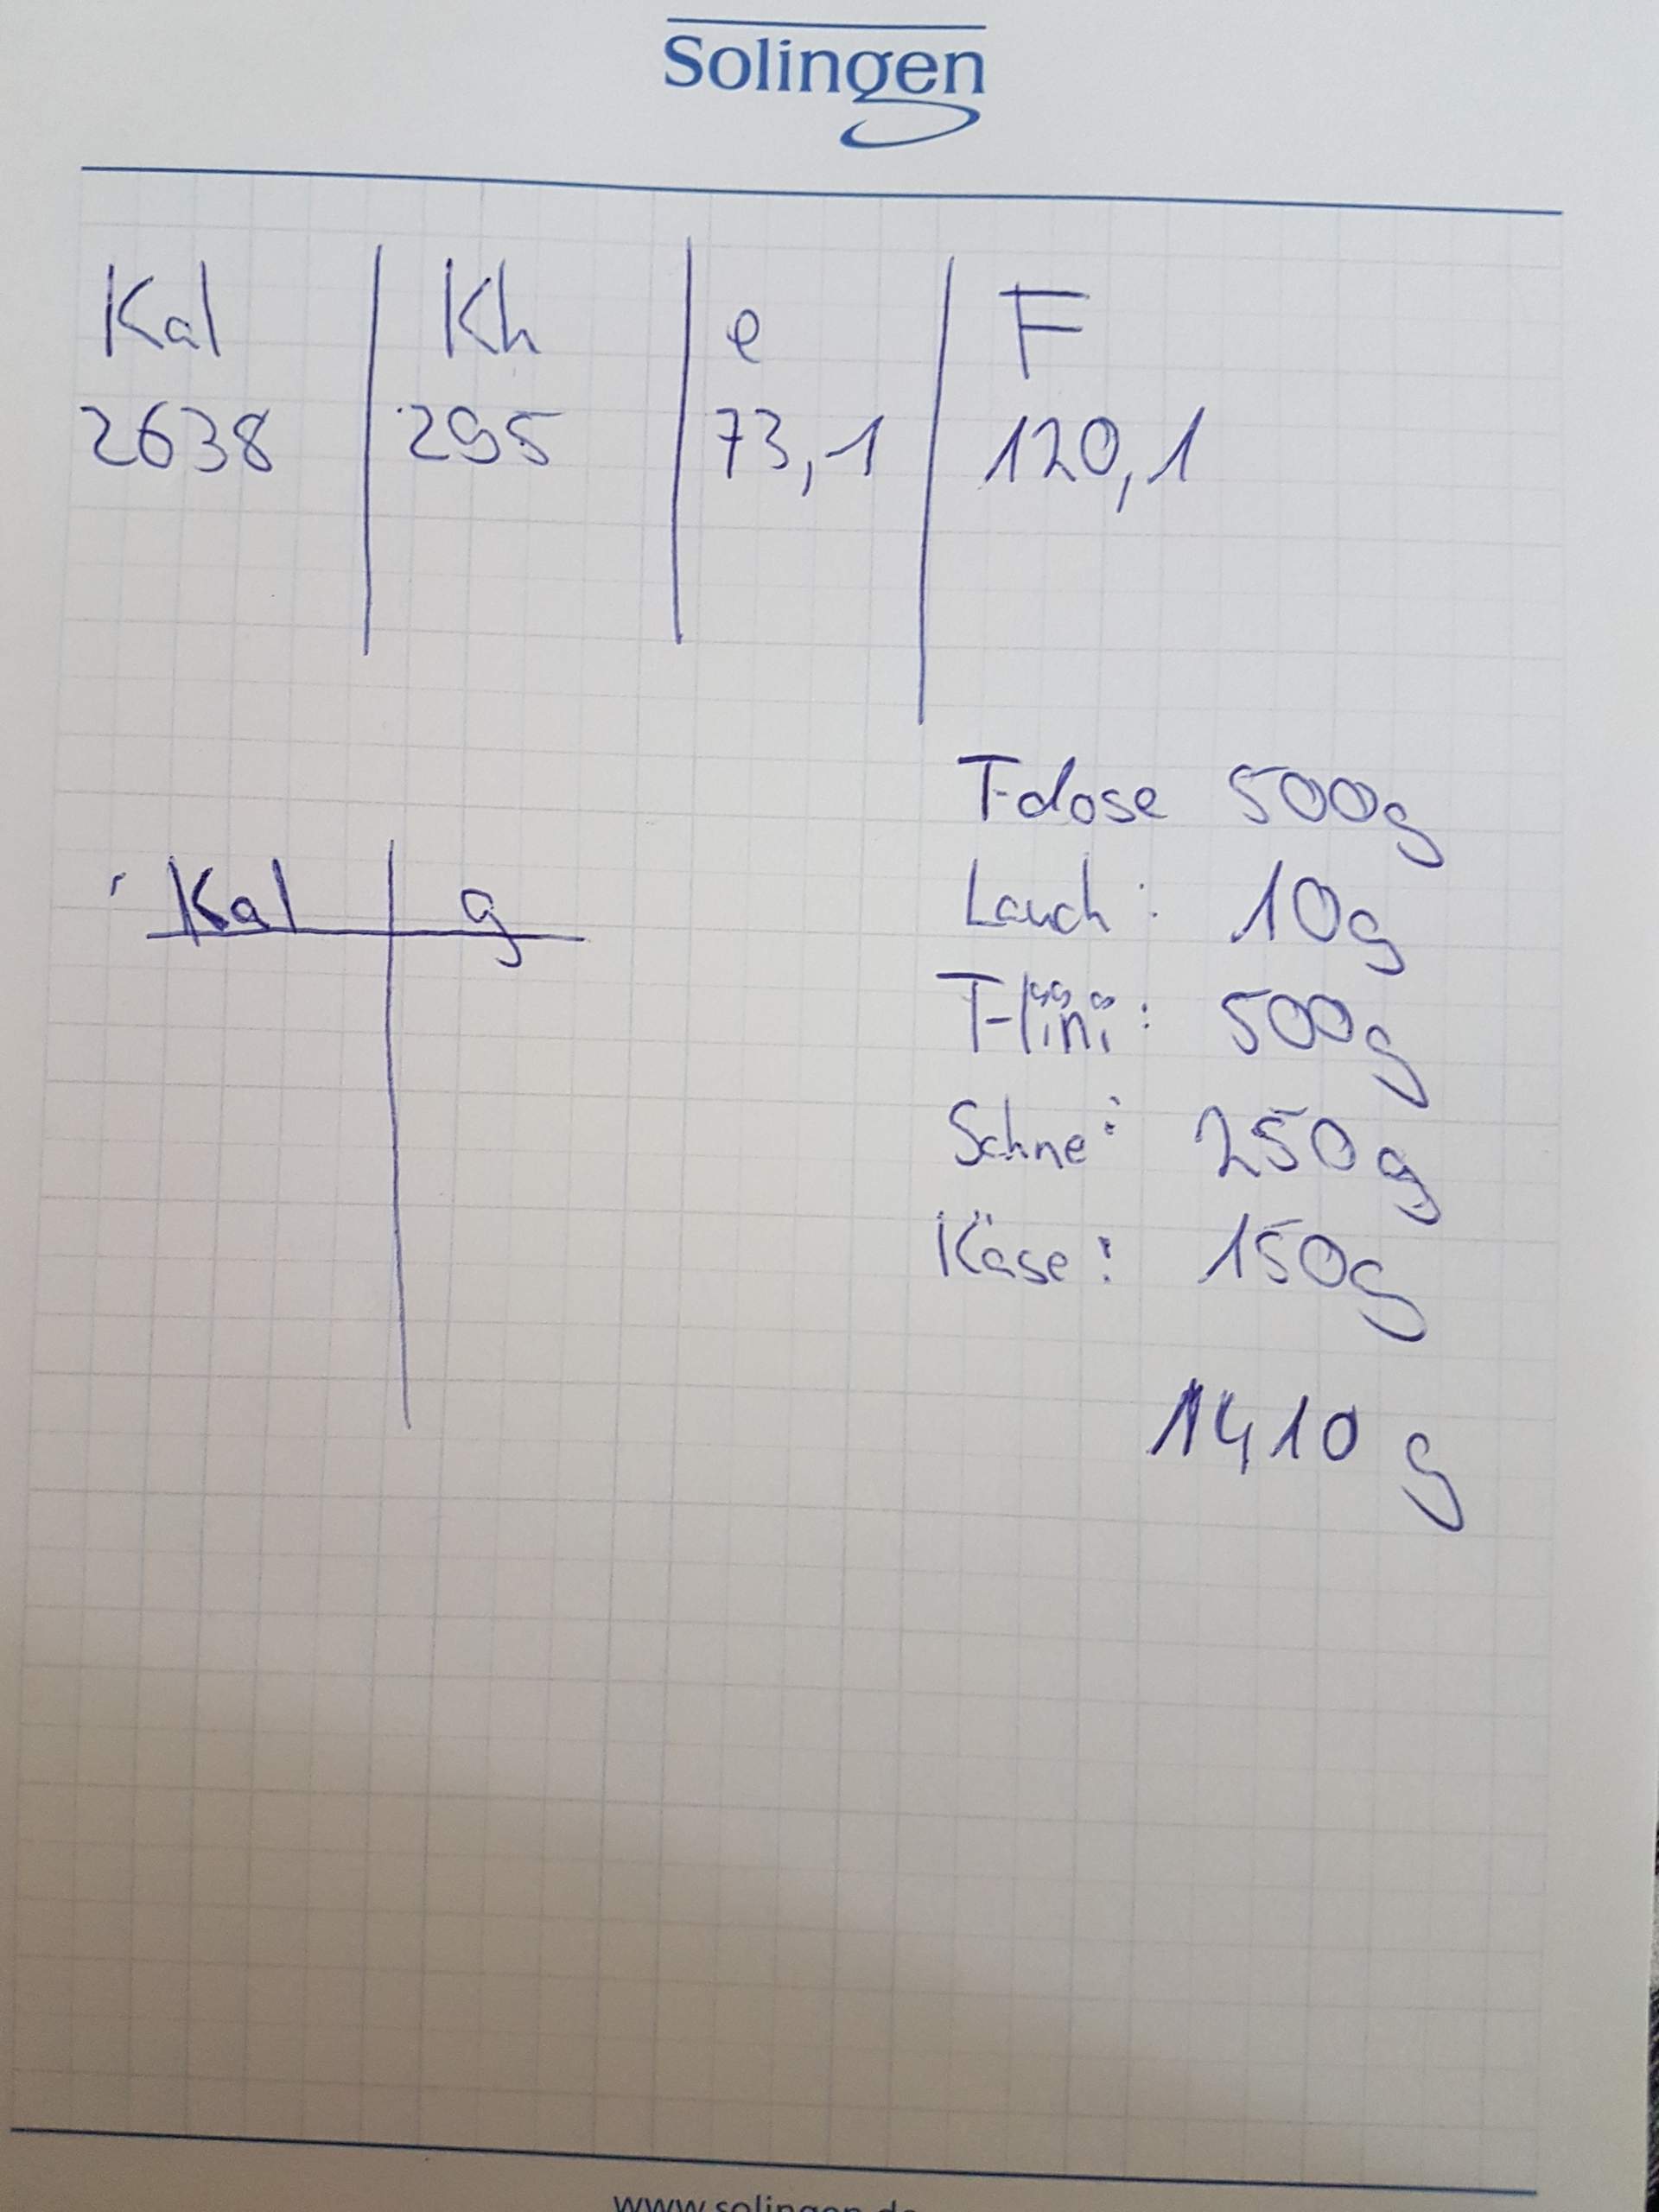 Solingen
Kal Kh e F
2638 295 73,1 120,1
T-dose 500g
Lauch: 10g
Kal g
500g
Schne: 250g
Käse: 150g
1410 g
www.solingen.de